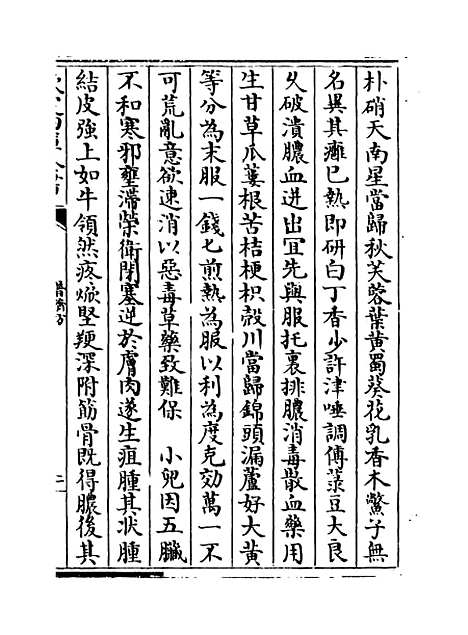 朴硝天南星當歸秋芙蓉葉黄蜀葵花乳香木鱉子無
名異其癰已熱即研白丁香少許津唾調傅菉豆大良
久破潰膿血迸出宜先與服托裏排膿消毒散血藥用
生甘草瓜蔞根苦桔梗枳殻川當歸錦頭漏蘆好大黄
等分為末服一錢七煎熱為服以利為度克効萬一不
可荒亂意欲速消以惡毒草藥致難保　小兒因五臟
不和寒邪壅滯榮衛閉塞逆於膚肉遂生疽腫其状腫
結皮強上如牛領然疼㷔堅硬深附筋骨既得膿後其
普濟方